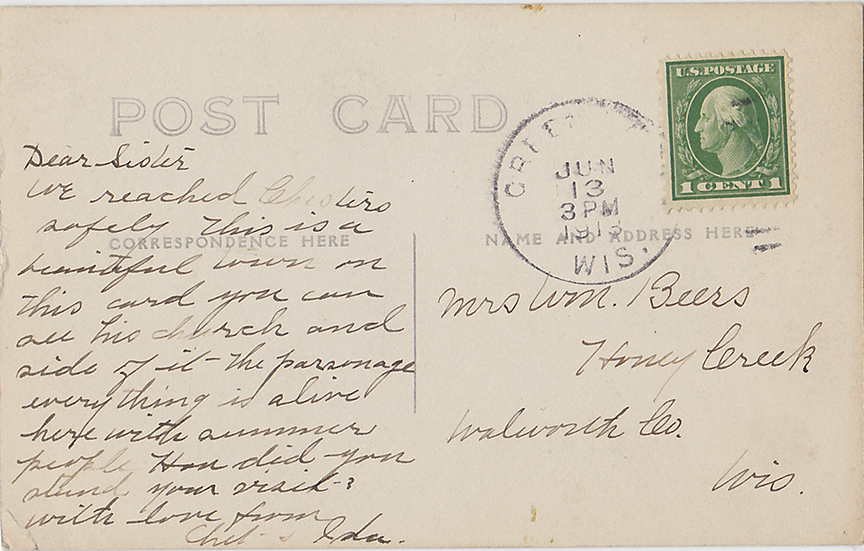 POST CARD
U.S. POSTAGE
1 CENT 1
JUN
13
3 PM
WIS.
CORRESPONDENCE HERE
NAME AND ADDRESS HERE
Dear Sister
We reached Chesters
safely This is a
beautiful town on
this card you can
see his church and
side of it - the parsonage
everything is alive
here with summer
people How did you
stand your visit - ?
with love from
Chet & Ida.
Mrs Wm. Beers
Honey Creek
Walworth Co.
Wis.